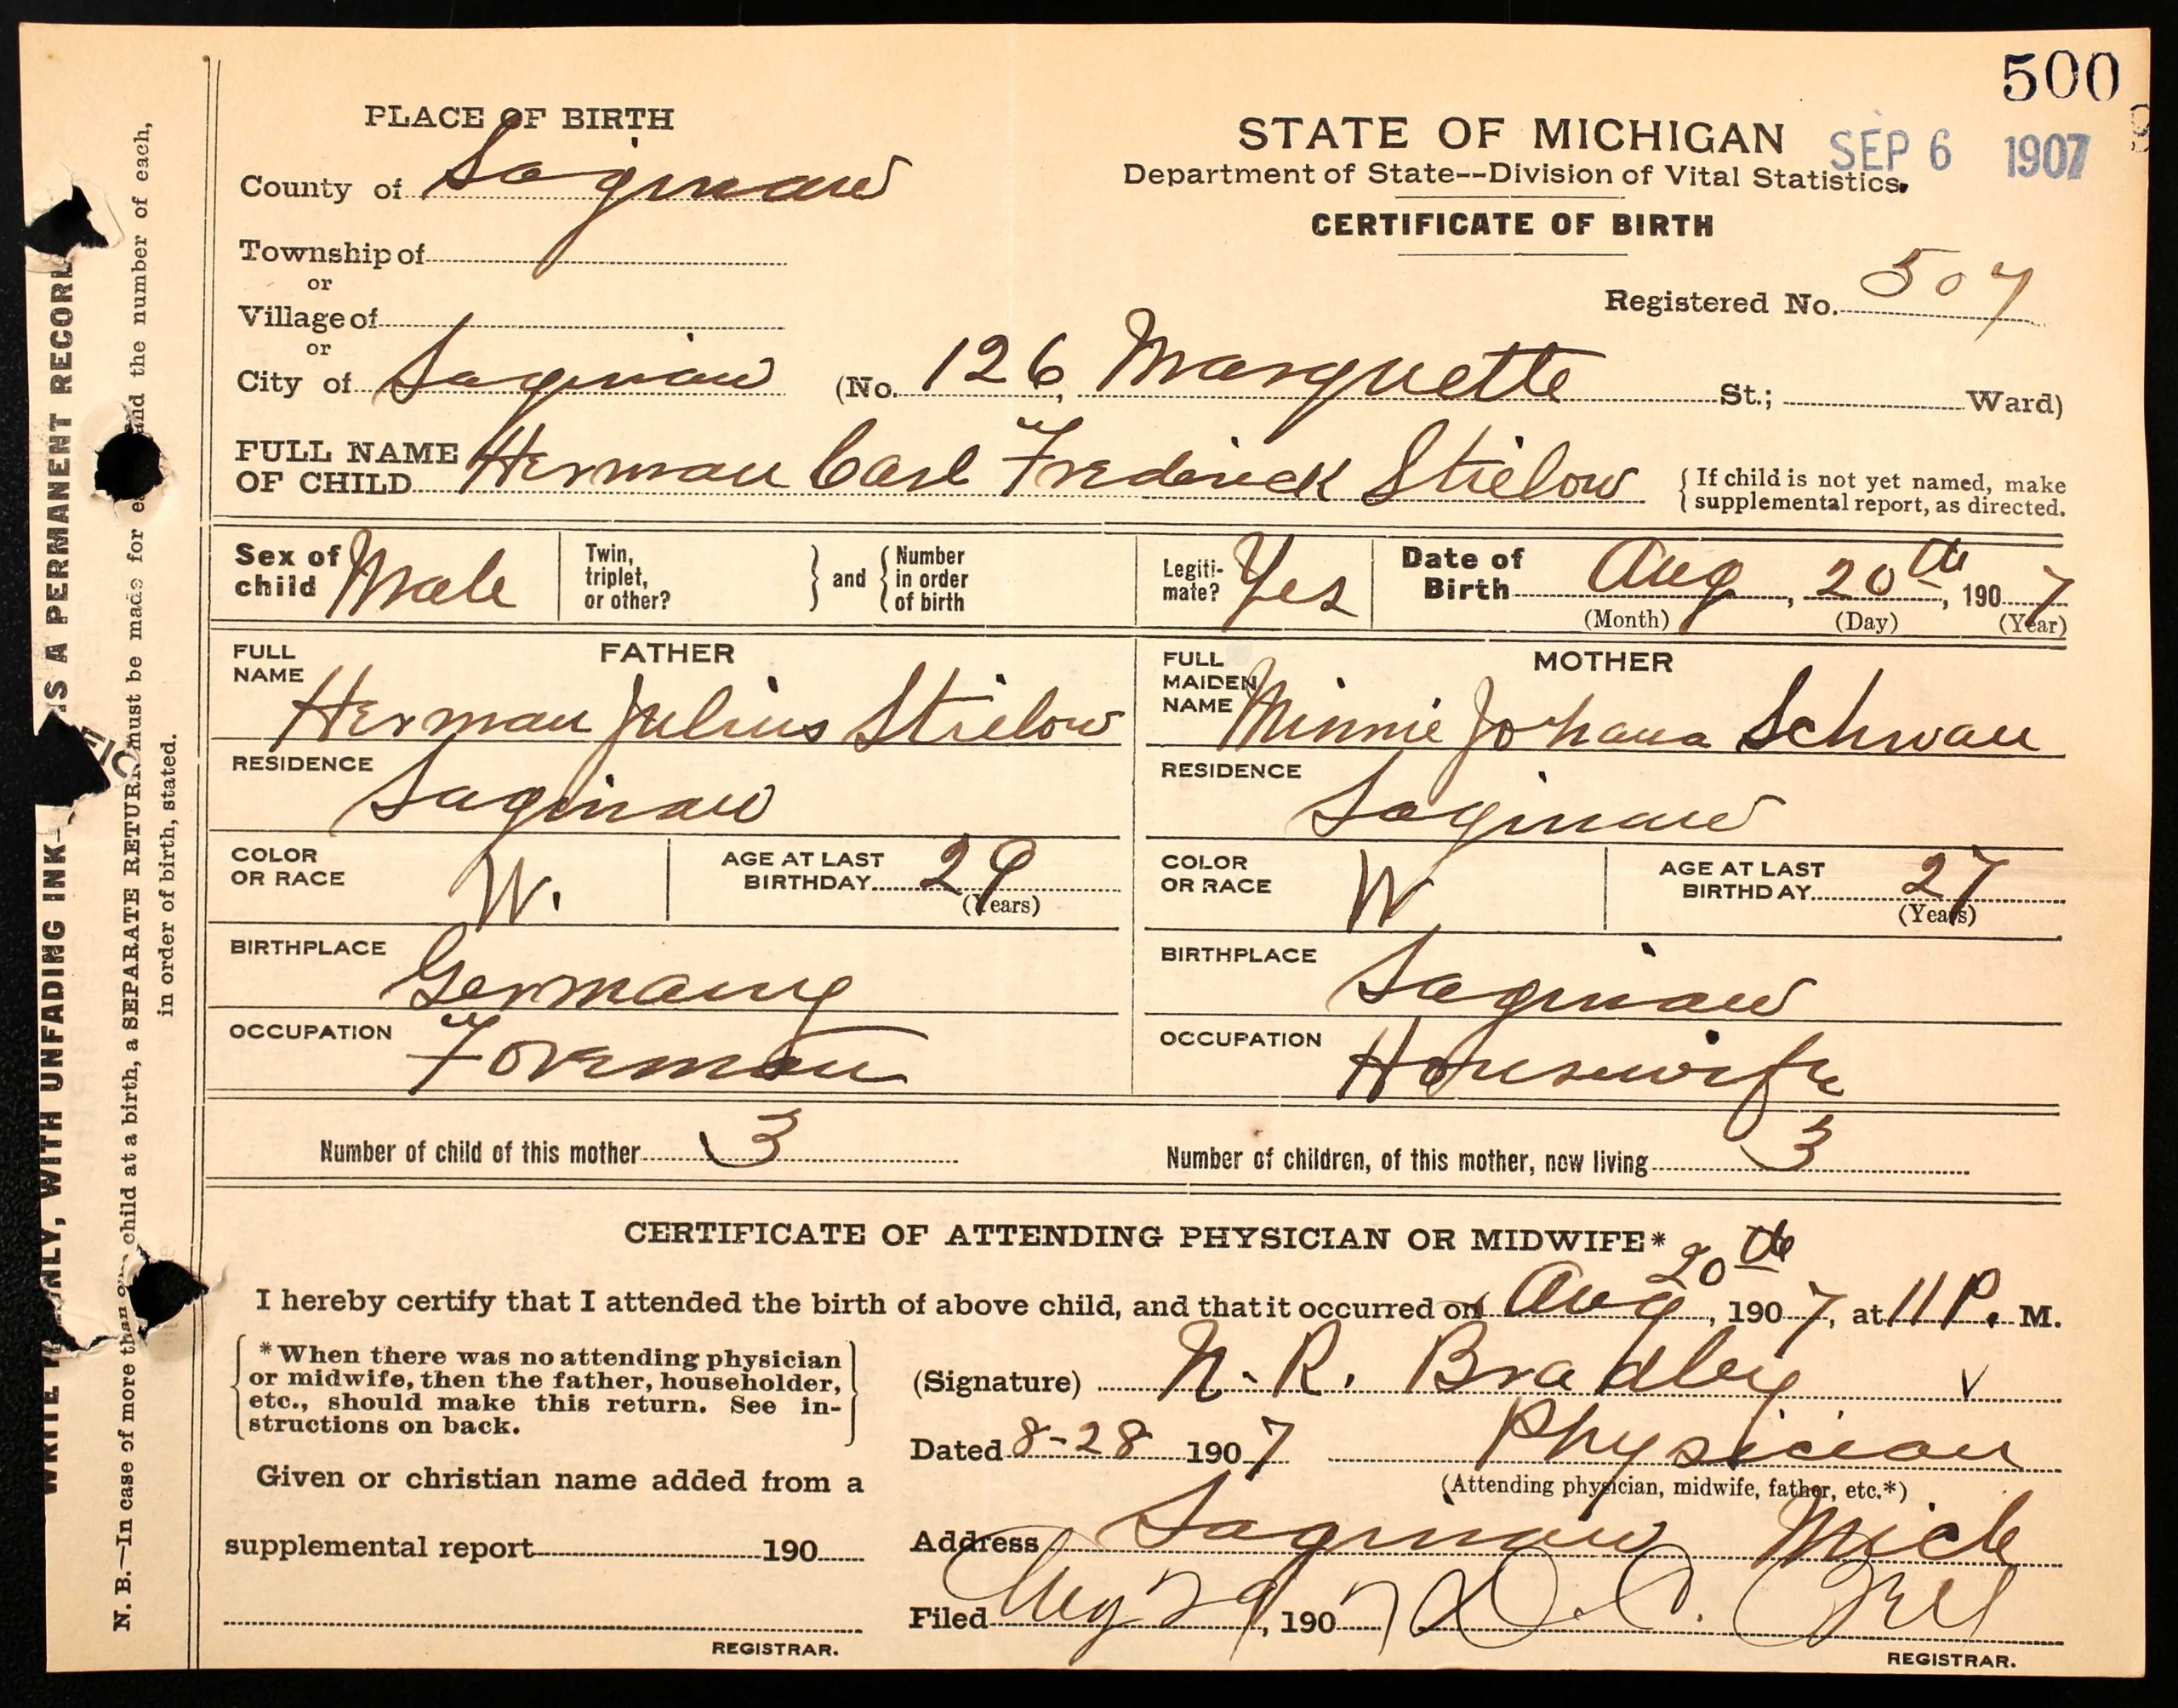 500
PLACE OF BIRTH
STATE OF MICHIGAN
SEP 6 1907
Department of State--Division of Vital Statistics.
CERTIFICATE OF BIRTH
County of Saginaw
Township of
or
Registered No. 507
Village of
or
City of Saginaw (No. 126, Marquette St.; Ward)
FULL NAME OF CHILD Herman Carl Frederick Strelow
{ If child is not yet named, make
supplemental report, as directed.
Sex of child Male
Twin, triplet, or other? } and { Number in order of birth
Legiti-mate? Yes
Date of Birth Aug, 20th, 1907
(Month) (Day) (Year)
FATHER
FULL NAME Herman Julius Strelow
RESIDENCE Saginaw
COLOR OR RACE W.
AGE AT LAST BIRTHDAY 29 (Years)
BIRTHPLACE Germany
OCCUPATION Forman
MOTHER
FULL MAIDEN NAME Minnie Johana Schwan
RESIDENCE Saginaw
COLOR OR RACE W
AGE AT LAST BIRTHDAY 27 (Years)
BIRTHPLACE Saginaw
OCCUPATION Housewife
Number of child of this mother 3
Number of children, of this mother, now living 3
CERTIFICATE OF ATTENDING PHYSICIAN OR MIDWIFE*
I hereby certify that I attended the birth of above child, and that it occurred on Aug 20th, 1907, at 11 P. M.
*When there was no attending physician
or midwife, then the father, householder,
etc., should make this return. See in-
structions on back.
(Signature) N. R. Bradley
Dated 8-28 1907 Physician
(Attending physician, midwife, father, etc.*)
Given or christian name added from a
supplemental report 190
REGISTRAR.
Address Saginaw Mich
Filed Aug 29, 1907
REGISTRAR.
WRITE ONLY, WITH UNFADING INK— IS A PERMANENT RECORD
N. B.—In case of more than child at a birth, a SEPARATE RETURN must be made for and the number of each,
in order of birth, stated.